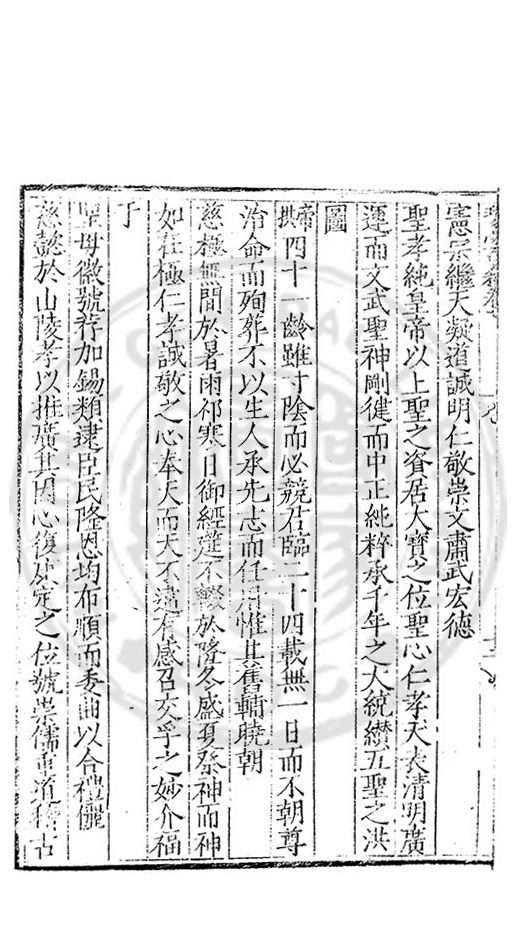 憲宗繼天凝道誠明仁敬崇文肅武宏德
聖孝純皇帝以上聖之資居大寶之位聖心仁孝天表清明廣
運而文武聖神剛健而中正純粹承千年之大統纘五聖之洪
圖
帝拱四十一齡雖寸陰而必競君臨二十四載無一日而不朝尊
治命而殉葬不以生人承先志而任用惟其舊輔曉朝
慈極無間於暑雨祁寒日御經筵不輟於隆冬盛夏祭神而神
如在極仁孝誠敬之心奉天而天不違有感召交孚之妙介福
于
聖母徽號荐加錫類逮臣民隆恩均布順而委曲以合禮儷
慈懿於山陵孝以推廣其因心復庚定之位號崇儒重道稽古